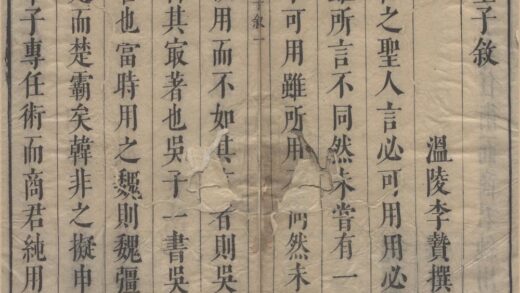 子敘
溫陵李贄撰
之聖人言必可用用必
雖所言不同然未嘗有一
可用雖所用同然未
子敘一
用而不如其者則吳
其㝡著也吳子一書吳
也當時用之魏則魏彊
而楚霸矣韓非之擬申
子專任術而商君純用